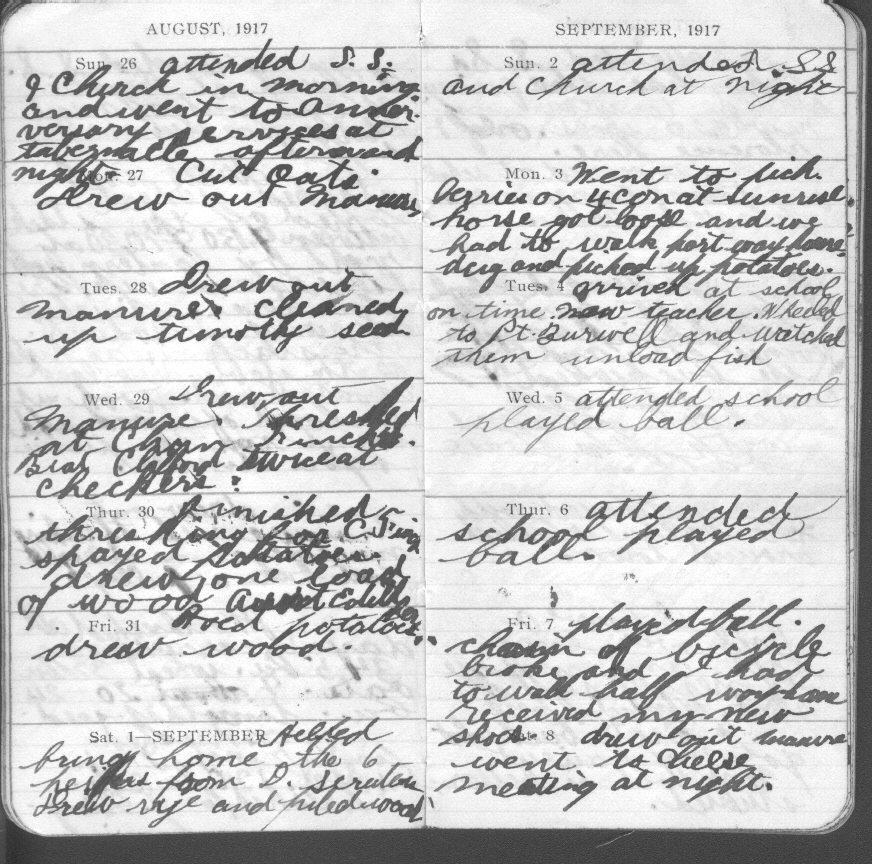 AUGUST, 1917
Sun. 26 attended S. S.
& Church in morning
and went to Anni-
versary services at
tabernacle afternoon and
night
Mon. 27 Cut Oats.
Drew out Manure,
Tues. 28 Drew out
manure. cleaned
up timothy seed
Wed. 29 Drew out
Manure. threshed
at
Beat Clifford twice at
checkers.
Thur. 30 Finished
threshing for
sprayed potatoes
drew one load
of wood Aunt
Fri. 31 Hoed potatoes
drew wood.
Sat. 1—SEPTEMBER Helped
bring home the 6
heifers from D.
Drew rye and piled wood
SEPTEMBER, 1917
Sun. 2 attended S.S
and Church at night
Mon. 3 Went to pick
berries on 4 con at sunrise.
horse got loose and we
had to walk part way home
dug and picked up potatoes.
Tues. 4 arrived at school
on time new teacher. Wheeled
to Pt. Burwell and watched
them unload fish
Wed. 5 attended school
played ball.
Thur. 6 attended
school played
ball.
Fri. 7 played ball.
chain of bicycle
broke and I had
to walk half way home
received my new
shoes
Sat. 8 drew out manure
went to
meeting at night.